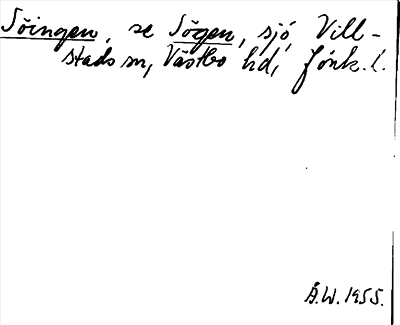 Söingen, se Sögen, sjö, Vill-
stads sn, Västbo hd, Jönk. l.
Å.W. 1955.